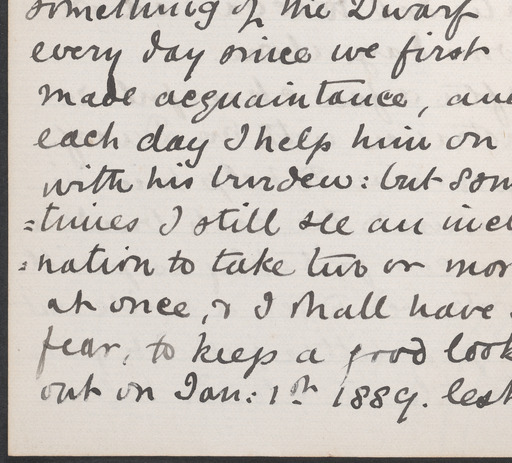 something of the Dwarf
every day since we first
made acquaintance, and
each day I help him on
with his burden: but som
=times I still see an incl
=nation to take two or mor
at once, & I shall have
fear, to keep a good look
out on Jan: 1st 1889. lest